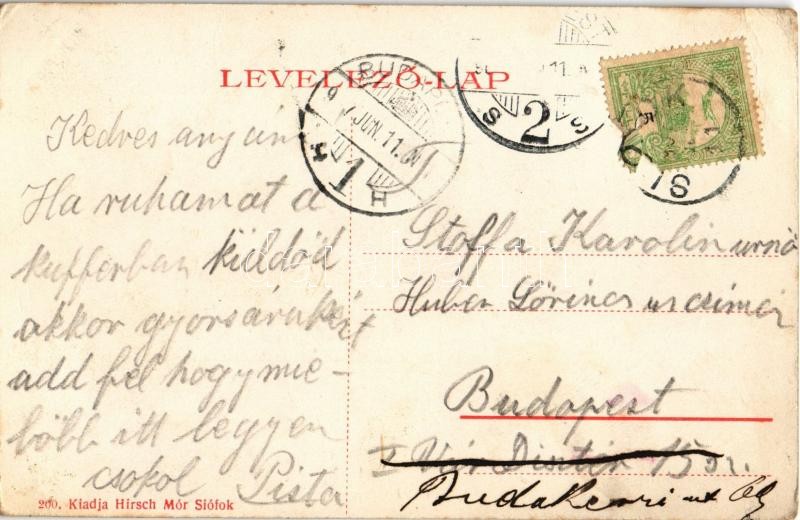 LEVELEZŐ-LAP
BUDAPEST
JUN. 11.
Kedves anyám
Ha ruhamat a
kufferban küldöd
akkor gyorsáruként
add fel hogy mie-
lőbb itt legyen
csokol Pista
Stoffa Karolin urnő
Huber Lőrincz ur czimén
Budapest
I Vár Disz tér 15 sz.
Budakeszi ut
SIÓFOK
2
200. Kiadja Hirsch Mór Siófok